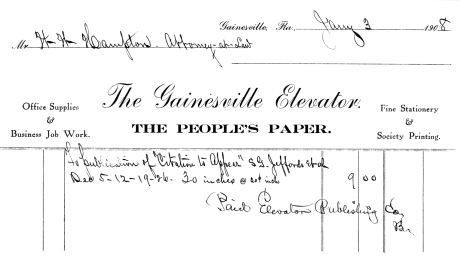 Gainesville, Fla., Jany 3 1908
Mr H. H. Hampton. Attorney-at-Law
Office Supplies
&
Business Job Work.
The Gainesville Elevator.
THE PEOPLE'S PAPER.
Fine Stationery
&
Society Printing.
To publication of "Citation to Appear" S.G. Jeffords et al
Dec 5-12-19-26. 30 inches @ 30¢ inch 9 00
Paid Elevator Publishing Co.